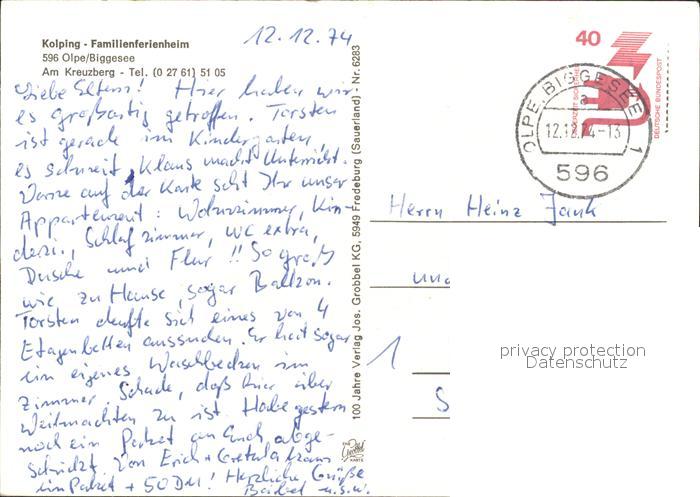 12.12.74
Kolping - Familienferienheim
596 Olpe/Biggesee
Am Kreuzberg - Tel. (0 27 61) 51 05
Liebe Eltern! Hier haben wir
es großartig getroffen. Torsten
ist gerade im Kindergarten,
es schneit, Klaus macht Unterricht.
Vorne auf der Karte seht Ihr unser
Appartement: Wohnzimmer, Kin-
derzi., Schlafzimmer, WC extra,
Dusche und Flur!! So groß
wie zu Hause, sogar Balkon.
Torsten durfte sich eines von 4
Etagenbetten aussuchen. Er hat sogar
ein eigenes Waschbecken im
Zimmer. Schade, daß hier über
Weihnachten zu ist. Habe gestern
noch ein Paket an Euch abge-
schickt. Von Erich + Greta kam
ein Paket + 50 DM! Herzliche Grüße
Bärbel u.s.w.
100 Jahre Verlag Jos. Grobbel KG, 5949 Fredeburg (Sauerland) - Nr. 6283
40
DEUTSCHE BUNDESPOST
OLPE, BIGGESEE 1
a
12.12.74-13
596
Herrn Heinz Jank
und
1
S
privacy protection
Datenschutz